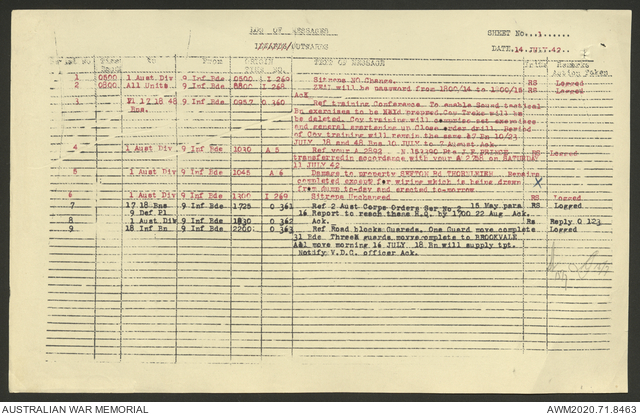 LOG OF MESSAGES
SHEET No...1......
INWARDS/OUTWARDS
DATE.14 JULY.42..
TEXT OF MESSAGE
1 0500 1 Aust Div 9 Inf Bde 0500 I 269 Sitreps NO Change. RS Logged
2 0800 All Units 9 Inf Bde I 268 will be password from 1800/14 to 1800/15 RS Logged
Ack
3 17 18 48 9 Inf Bde 0957 O 360 Ref training Conference. To enable Sound tactical
Bns. Bn exercises to be prepared. Coy Treks will
be deleted. Coy training will comprise set exercises
and general smartening up Close order drill. Period
of Coy training will remain the same 17 Bn 10/23
JULY 18 and 48 Bns 10 JULY to 2 August Ack.
4 1 Aust Div 9 Inf Bde 1030 A 5 Ref your A 2893 Pte J.F PRINCE RS Logged
transferred in accordance with your A 2258 on SATURDAY
11 JULY 42
5 1 Aust Div 9 Inf Bde 1045 A 6 Damage to property Rd Repairs
completed except for wiring which is being drawn X
from dump to-day and erected to-morrow
6 1 Aust Div 9 Inf Bde 1300 I 269 Sitreps Unchanged RS Logged
7 17 18 Bns 9 Inf Bde 1725 O 361 Ref 2 Aust Corps Orders Ser No 2 15 May para RS Logged
9 Def Pl 16 Report to reach thsss H.Q. by 1700 22 Aug Ack.
8 1 Aust Div 9 Inf Bde 1830 O 362 Ack. Rs Reply O 123
9 18 Inf Bn 9 Inf Bde 2200 O 363 Ref Road blocks Guards. One Guard move complete Logged
31 Bde Three guards move complete to BROOKVALE
All move morning 16 JULY 18 Bn will supply tpt.
Notify V.D.C. officer Ack.
AUSTRALIAN WAR MEMORIAL
AWM2020.71.8463